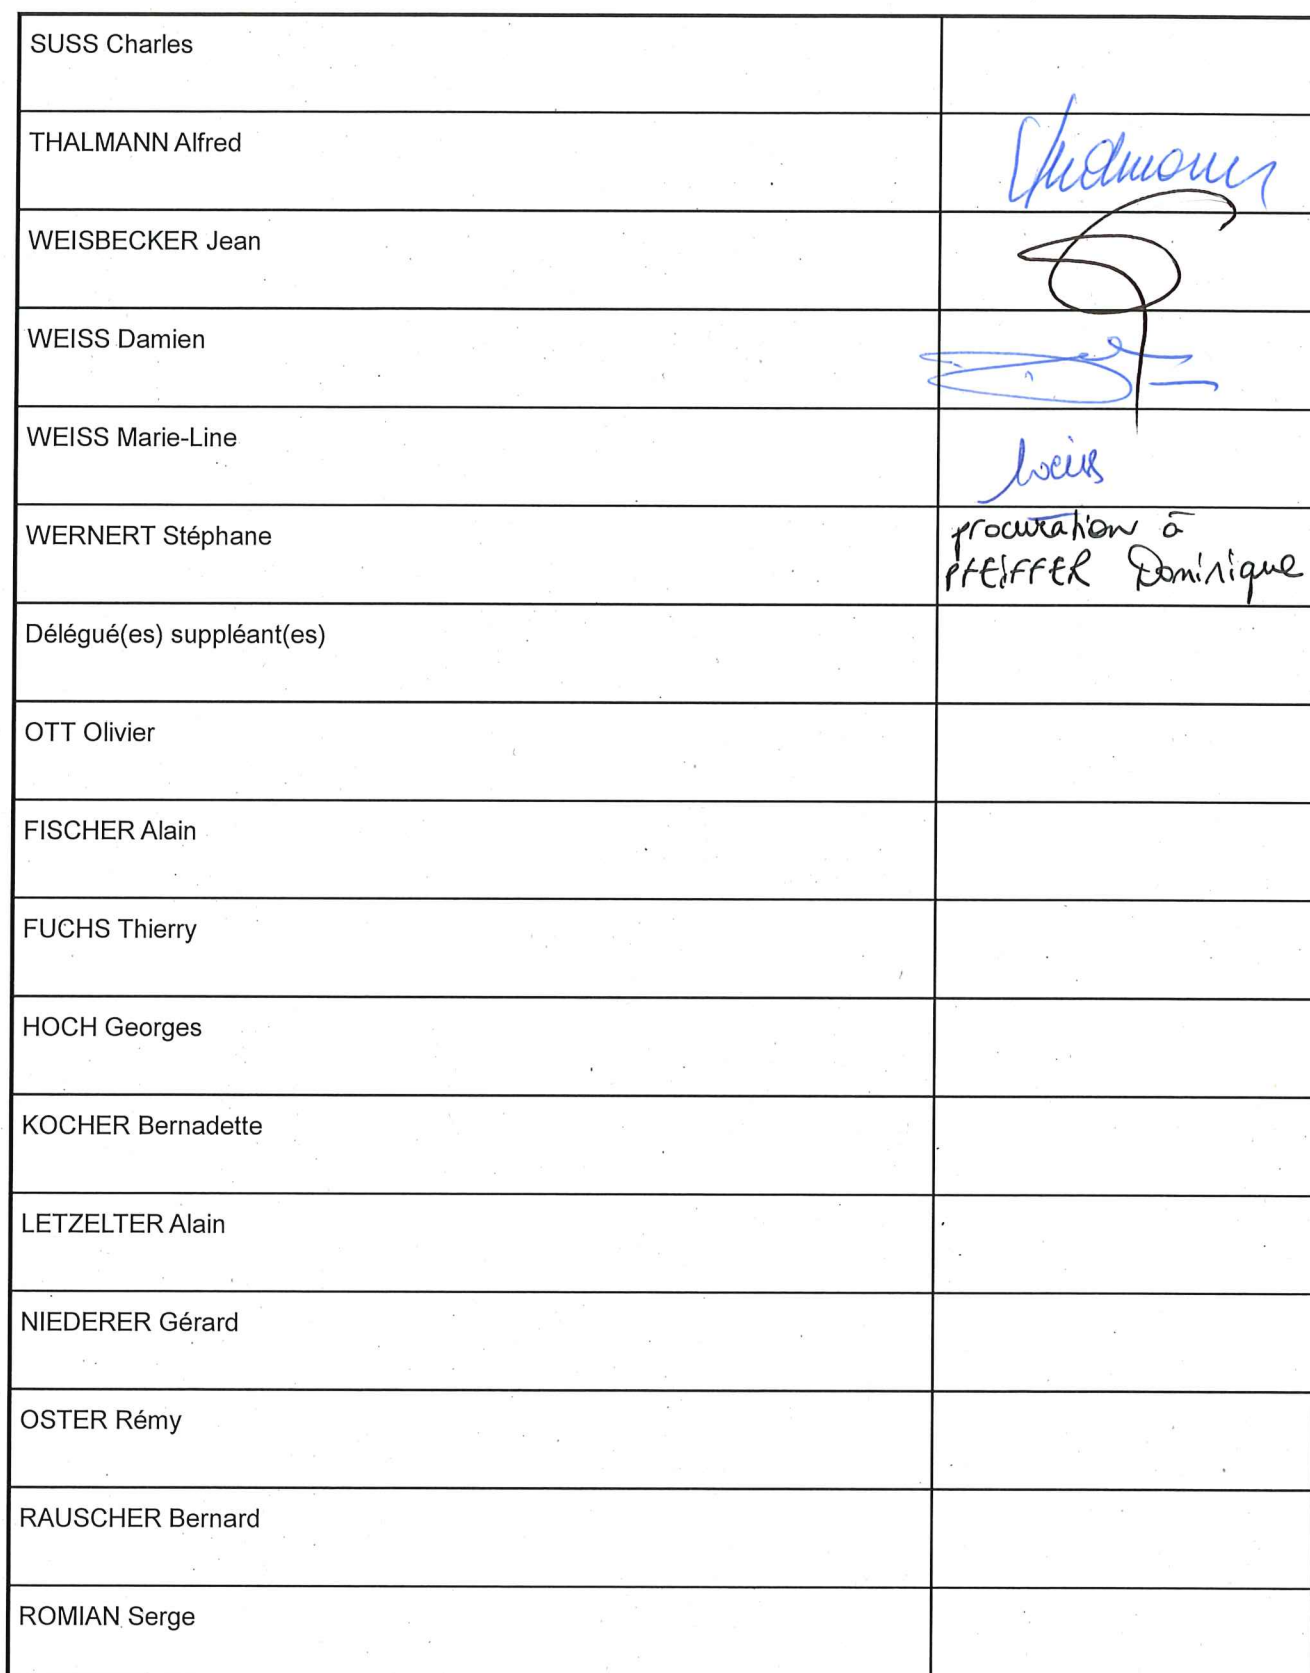 SUSS Charles
THALMANN Alfred
Thalmann
WEISBECKER Jean
WEISS Damien
WEISS Marie-Line
Weiss
WERNERT Stéphane
procuration à
PFEIFFER Dominique
Délégué(es) suppléant(es)
OTT Olivier
FISCHER Alain
FUCHS Thierry
HOCH Georges
KOCHER Bernadette
LETZELTER Alain
NIEDERER Gérard
OSTER Rémy
RAUSCHER Bernard
ROMIAN Serge